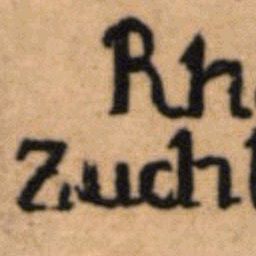 Rh
Zuch